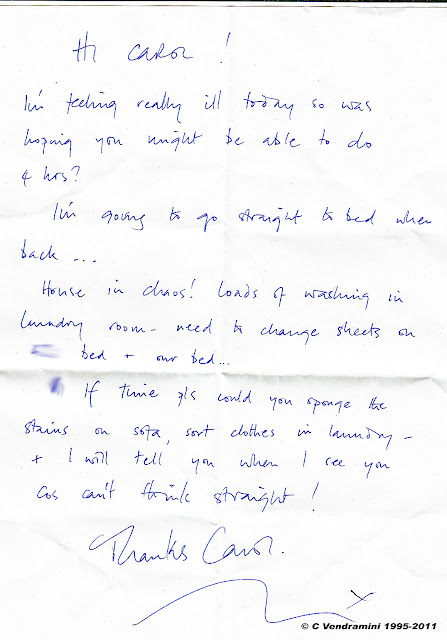 Hi CAROL !
I'm feeling really ill today so was
hoping you might be able to do
4 hrs?
I'm going to go straight to bed when
back ...
House in chaos! Loads of washing in
laundry room - need to change sheets on
bed + our bed...
If time pls could you sponge the
stains on sofa, sort clothes in laundry -
+ I will tell you when I see you
cos can't think straight!
Thanks Carol.
x
© C Vendramini 1995-2011